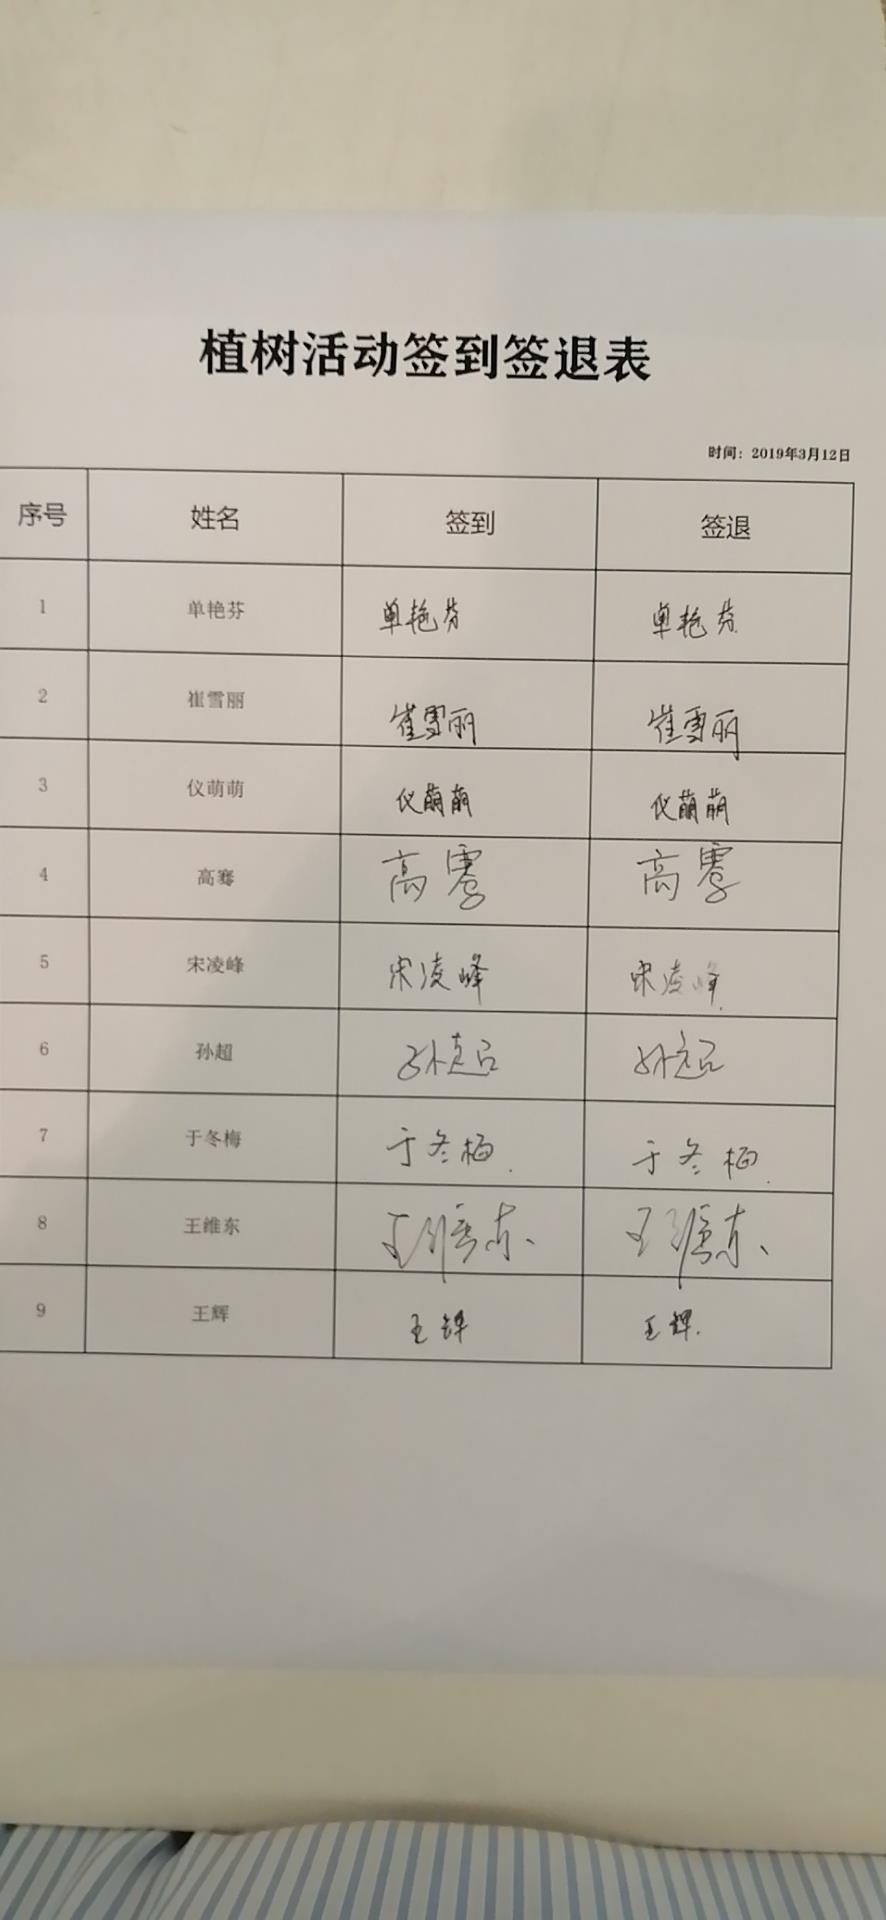 植树活动签到签退表
时间：2019年3月12日
序号 姓名 签到 签退
1 单艳芬 单艳芬 单艳芬
2 崔雪丽 崔雪丽 崔雪丽
3 仪萌萌 仪萌萌 仪萌萌
4 高骞 高骞 高骞
5 宋凌峰 宋凌峰 宋凌峰
6 孙超 孙超 孙超
7 于冬梅 于冬梅 于冬梅
8 王维东 王维东 王维东
9 王辉 王辉 王辉